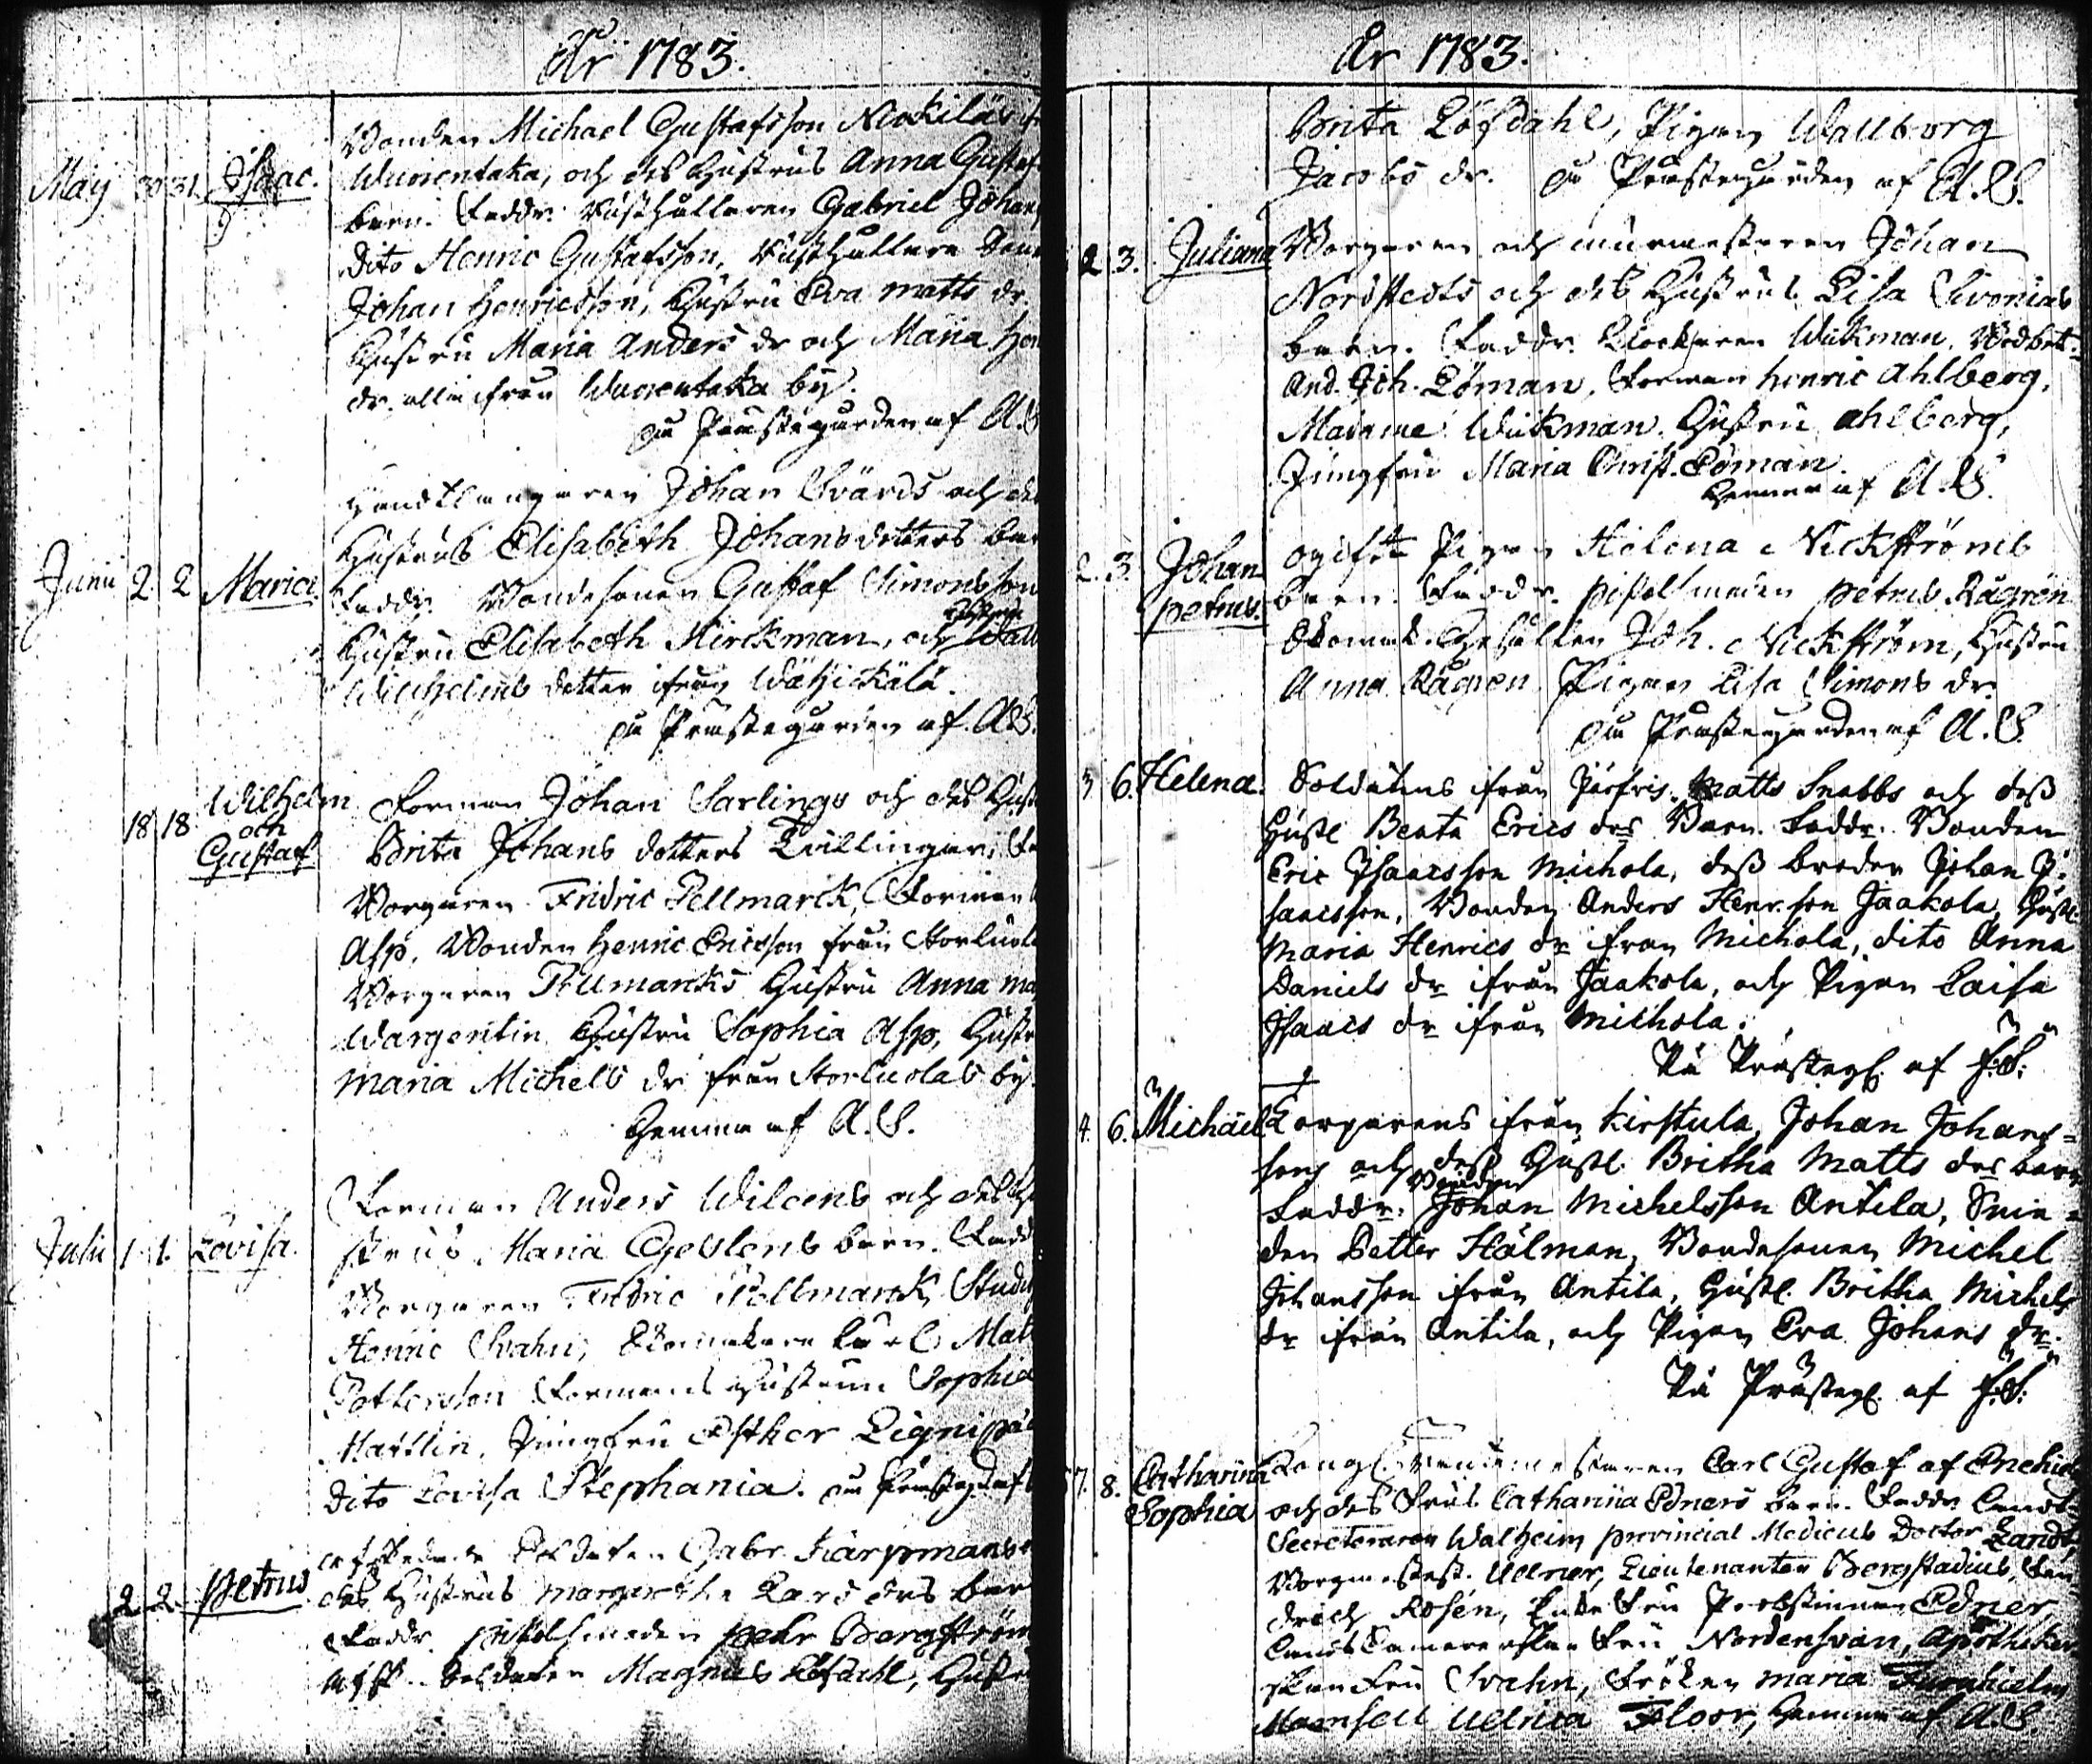 År 1783.
Bonden Michael Gustafsson Nickilä ifr
May 30 31. Isaac. Wuorentaka, och des Hustrus Anna Gustaf
barn. Faddr. Rusthållaren Gabriel Johans
dito Henric Gustafsson, Rusthållare Sone
Johan Henricsson, Hustru Eva Matts dr.
Hustru Maria Anders dr och Maria Hen
dr. alla ifrån Wuorentaka by.
På Prästegården af A.S.
Handtlangaren Johan Svärds och des
Hustrus Elisabeth Johansdotters bar
Junii 2. 2 Maria. Faddr. Bondesonen Gustaf Simonsson
Hustru Elisabeth Mirckman, och Hustru Wall
Wilhelms dotter ifrån Wähickälä.
På Prästegården af A.S.
18 18 Wilhelm och Gustaf Forman Johan Sarlings och des Hust
Brita Johans dotters Tvillingar. Fa
Borgaren Fridric Tellmarck, Forman
Asp, Bonden Henric Ericsson från Storluola
Borgaren Tellmarcks Hustru Anna Ma
Wargentin, Hustru Sophia Asp, Hustr
Maria Michels dr från Storluolas by.
Hemma af A.S.
Forman Anders Wilcens och des Hu
Julii 1 1. Lovisa. strus Maria Geslens barn. Fadd
Borgaren Fridric Tellmarck, Stud
Henric Svahn, Skomakare Carl Mat
Petterson Formans Hustrun Sophia
Martlin, Jungfru Esther Lignipæ
dito Lovisa Stephania. på Prästegd af
afskedade Soldaten Gabr. Karpmans
2 2. Petrus des Hustrus Margaretha Lars drs bar
Faddr. pistolsmeden Pehr Bergström
afsk. Soldaten Magnus Löfdahl, Hustru
År 1783.
Brita Löfdahl, Pigan Wallborg
Jacobs dr. På Prästegården af A.S.
2. 3. Juliana Borgaren och murmestaren Johan
Nordstedts och des Hustrus Lisa Sivonias
barn. Faddr. Klockaren Wickman, Wedbet.
And. Joh. Löman, Forman Henric Ahlberg,
Madame Wickman, Hustru Ahlberg,
Jungfru Maria Christ. Löman.
Hemma af A.S.
2. 3. Johan Petrus. ogifta Pigan Helena Nickströms
barn. Faddr. Pistolsmeden Petrus Rågrén
Skomak. Gesällen Joh. Nickström, Hustru
Anna Rågren, Pigan Lisa Simons dr.
På Prästegården af A.S.
3. 6. Helena. Soldatens ifrån Järfris, Matts Snabbs och dess
Hust. Beata Erics drs Barn. Faddr. Bonden
Eric Isaacsson Michola, dess broder Johan I-
saacsson, Bonden Anders Henr.son Jaakola, Hust.
Maria Henrics dr ifrån Michola, dito Anna
Daniels dr ifrån Jaakola, och Pigan Caisa
Isaacs dr ifrån Michola.
På Prästeg. af J.S.
4. 6. Michaël Torparens ifrån Kirstula, Johan Johans-
sons och dess Hust. Britha Matts drs barn
Faddr. Bonden Johan Michelsson Antila, Smе-
den Petter Hälman, Bondesonen Michel
Johansson ifrån Antila, Hust. Britha Michels
dr ifrån Antila, och Pigan Eva Johans dr.
På Prästeg. af J.S.
7. 8. Catharina Sophia Kongl. Rentemestaren Carl Gustaf af Enehielm
och des Frus Catharina Edners barn. Faddr. Lands
Secreteraren Walheim, Provincial Medicus Doctor Zandt,
Borgmest. Ullner, Lieutenanten Bergstadius, Fän-
drich Rosén, Enke Fru Probstinnan Edner,
Lands Camererskan Fru Nordensvan, Apotheker-
skan Fru Svahn, Fröken Maria Furuhielm
Mamsell Ullrica Floor, Hemma af A.S.